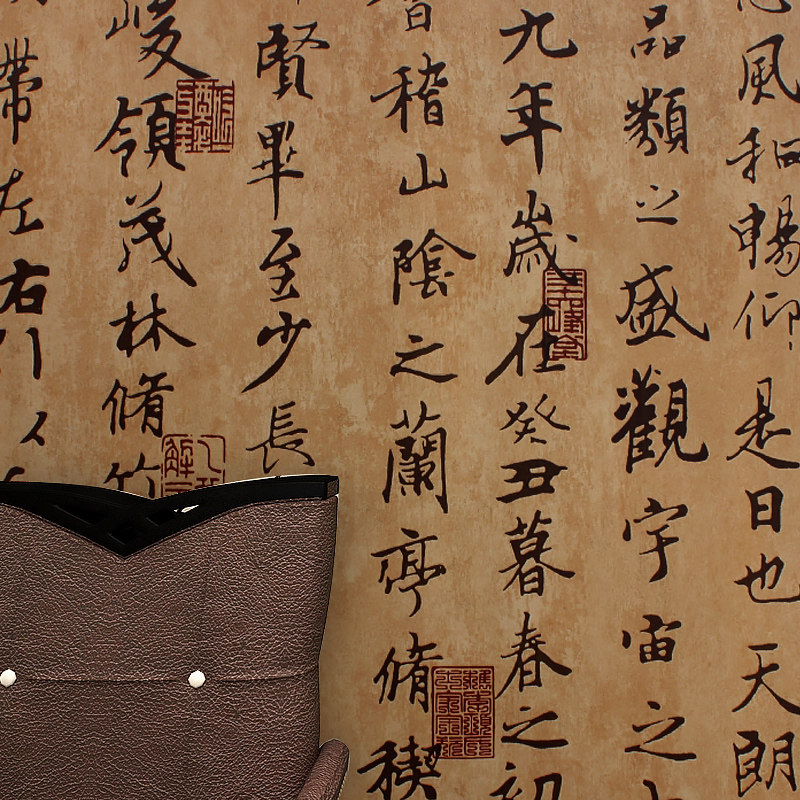 風和暢仰是日也天朗
品類之盛觀宇宙之
九年歲在癸丑暮春之初
稽山陰之蘭亭脩禊
賢畢至少長
峻領茂林脩竹
帶左右